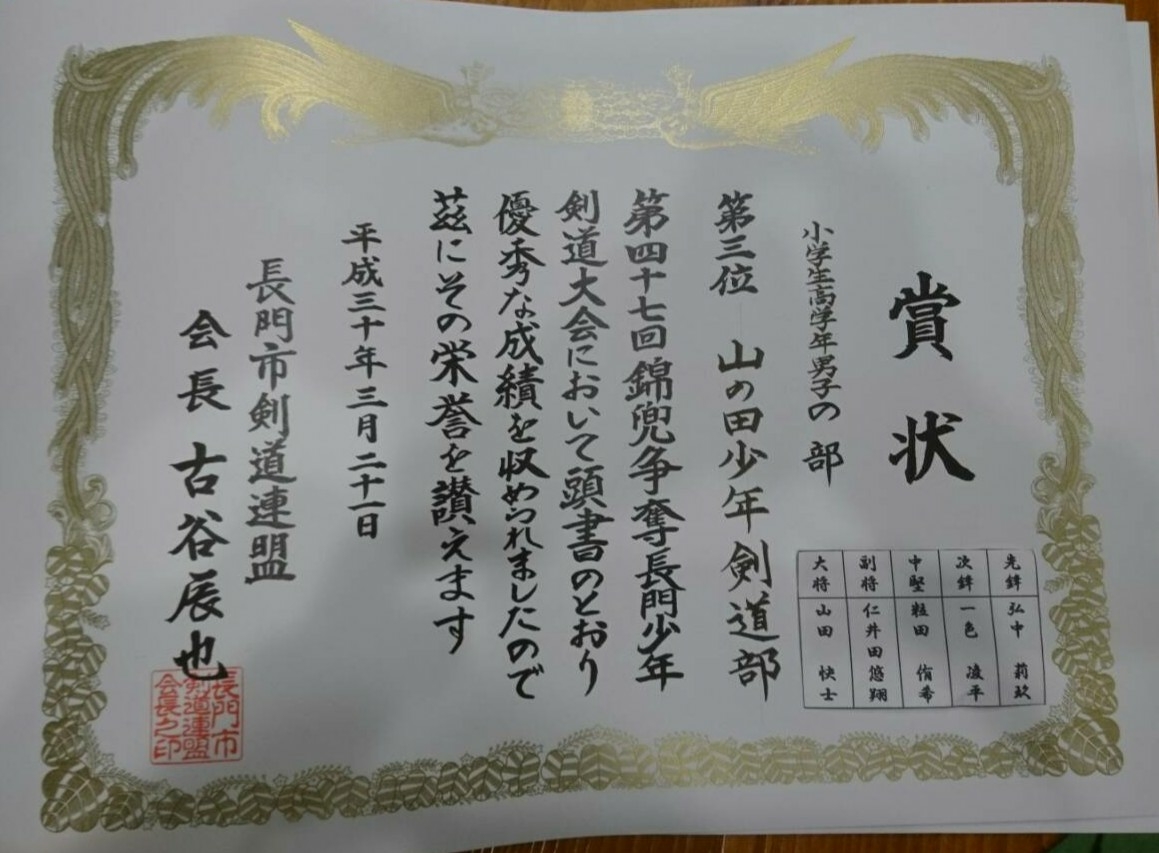 賞状
小学生高学年男子の部
先鋒 弘中 莉玖
次鋒 一色 凌平
中堅 粒田 侑希
副将 仁井田悠翔
大将 山田 快士
第三位 山の田少年剣道部
第四十七回錦兜争奪長門少年
剣道大会において頭書のとおり
優秀な成績を収められましたので
茲にその栄誉を讃えます
平成三十年三月二十一日
長門市剣道連盟
会長 古谷辰也
長門市
剣道連盟
会長之印